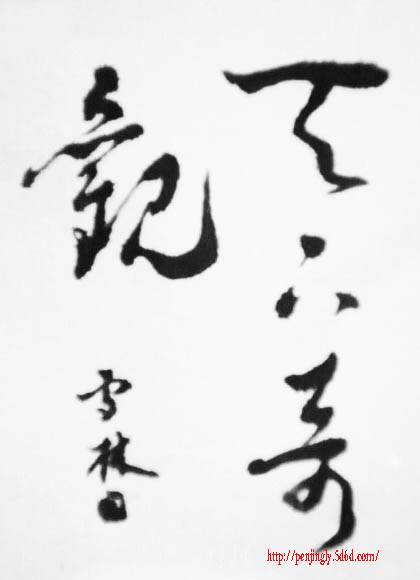 天下奇
觀
雪林
http://penjingly.5d6d.com/